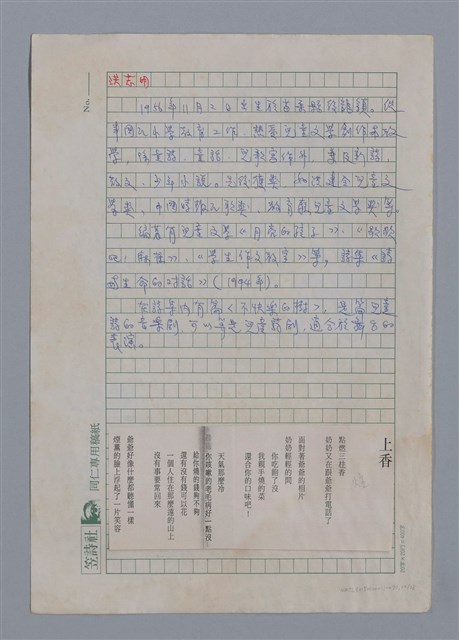 洪志明
1956年11月2日出生於苗栗縣後龍鎮。從
事國民小學教育工作，熱愛兒童文學創作與教
學，除童詩、童話、兒歌寫作外，兼及新詩、
散文、少年小說。先後獲獎，如洪建全兒童文
學獎、中國時報兒歌獎、教育廳兒童文學獎等。
編著有兒童文學《月亮的鞋子》、《
》、《學生作文教室》等，詩集《
生命的對話》(1994年)。
在詩集內有篇〈不快樂的樹〉，是篇兒童
詩的音樂劇，可以算是兒童詩劇，適合於舞台的
表演。
上香
點燃三柱香
奶奶又在跟爺爺打電話了
面對著爺爺的相片
奶奶輕輕的問
你吃飽了沒
我親手燒的菜
還合你的口味吧！
天氣那麼冷
你咳嗽的老毛病好一點沒！
給你燒的錢夠不夠
還有沒有錢可以花
一個人住在那麼遠的山上
沒有事要常回來
爺爺好像什麼都聽懂一樣
煙薰的臉上浮起了一片笑容
No.
笠詩社
同仁專用稿紙